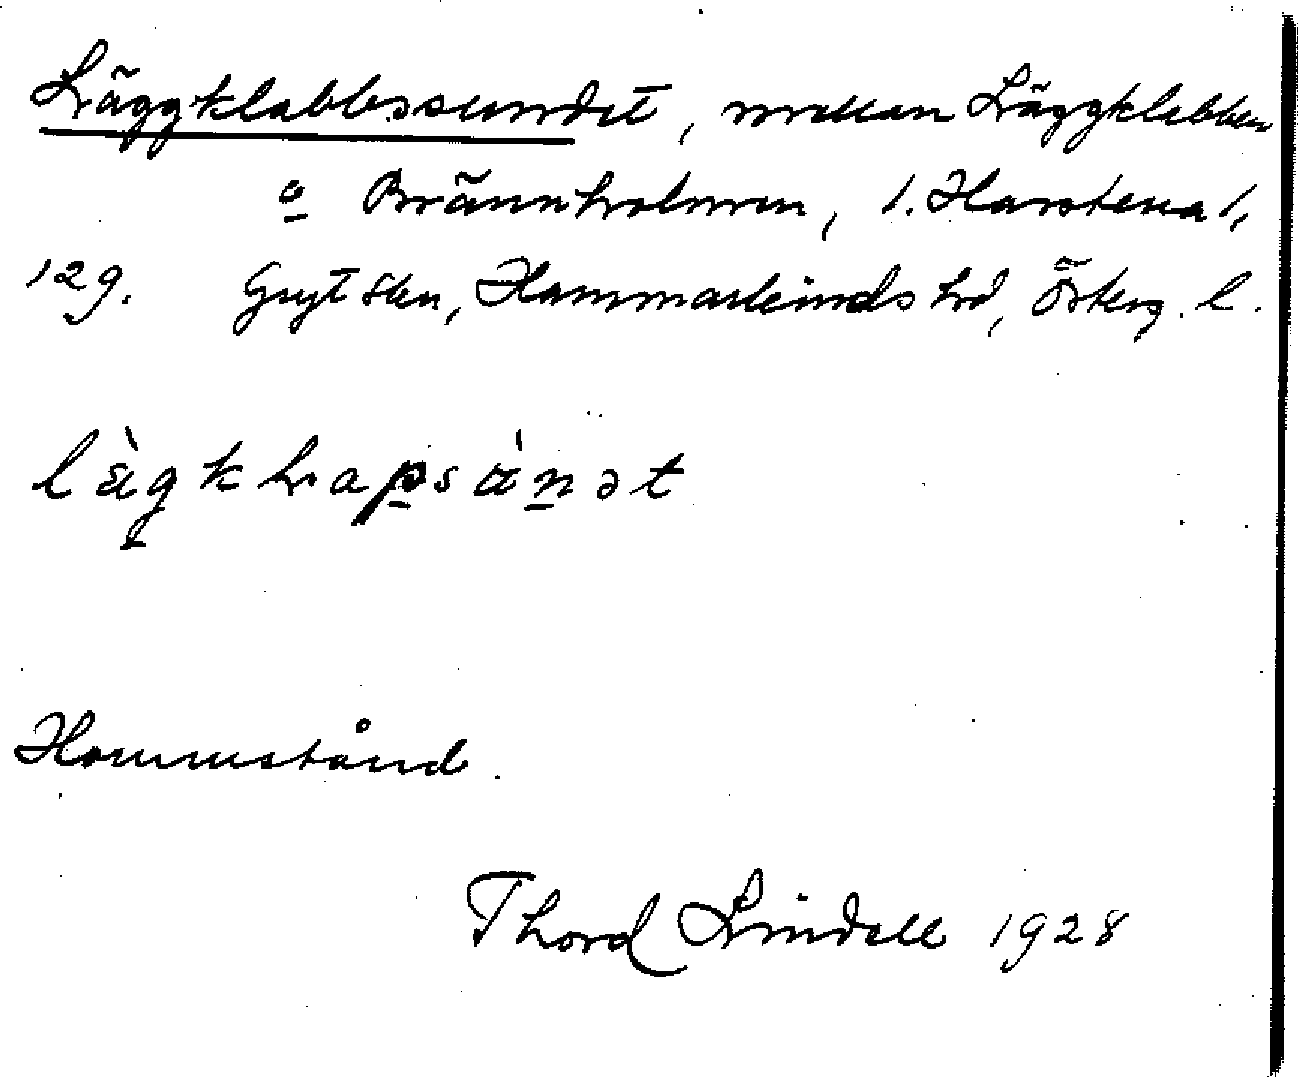 Läggklabbssundet, mellan Läggklabben
o Brännholmen, 1. Harstena 1,
129. Gryt skn, Hammarkinds hd, Österg. l.
Hommstånd.
Thord Lindell 1928